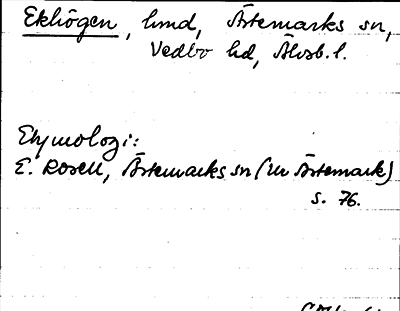 Ekhögen, hmd, Ärtemarks sn,
Vedbo hd, Älvsb. l.
Etymologi:
E. Rosell, Ärtemarks sn (ur Ärtemark)
s. 76.